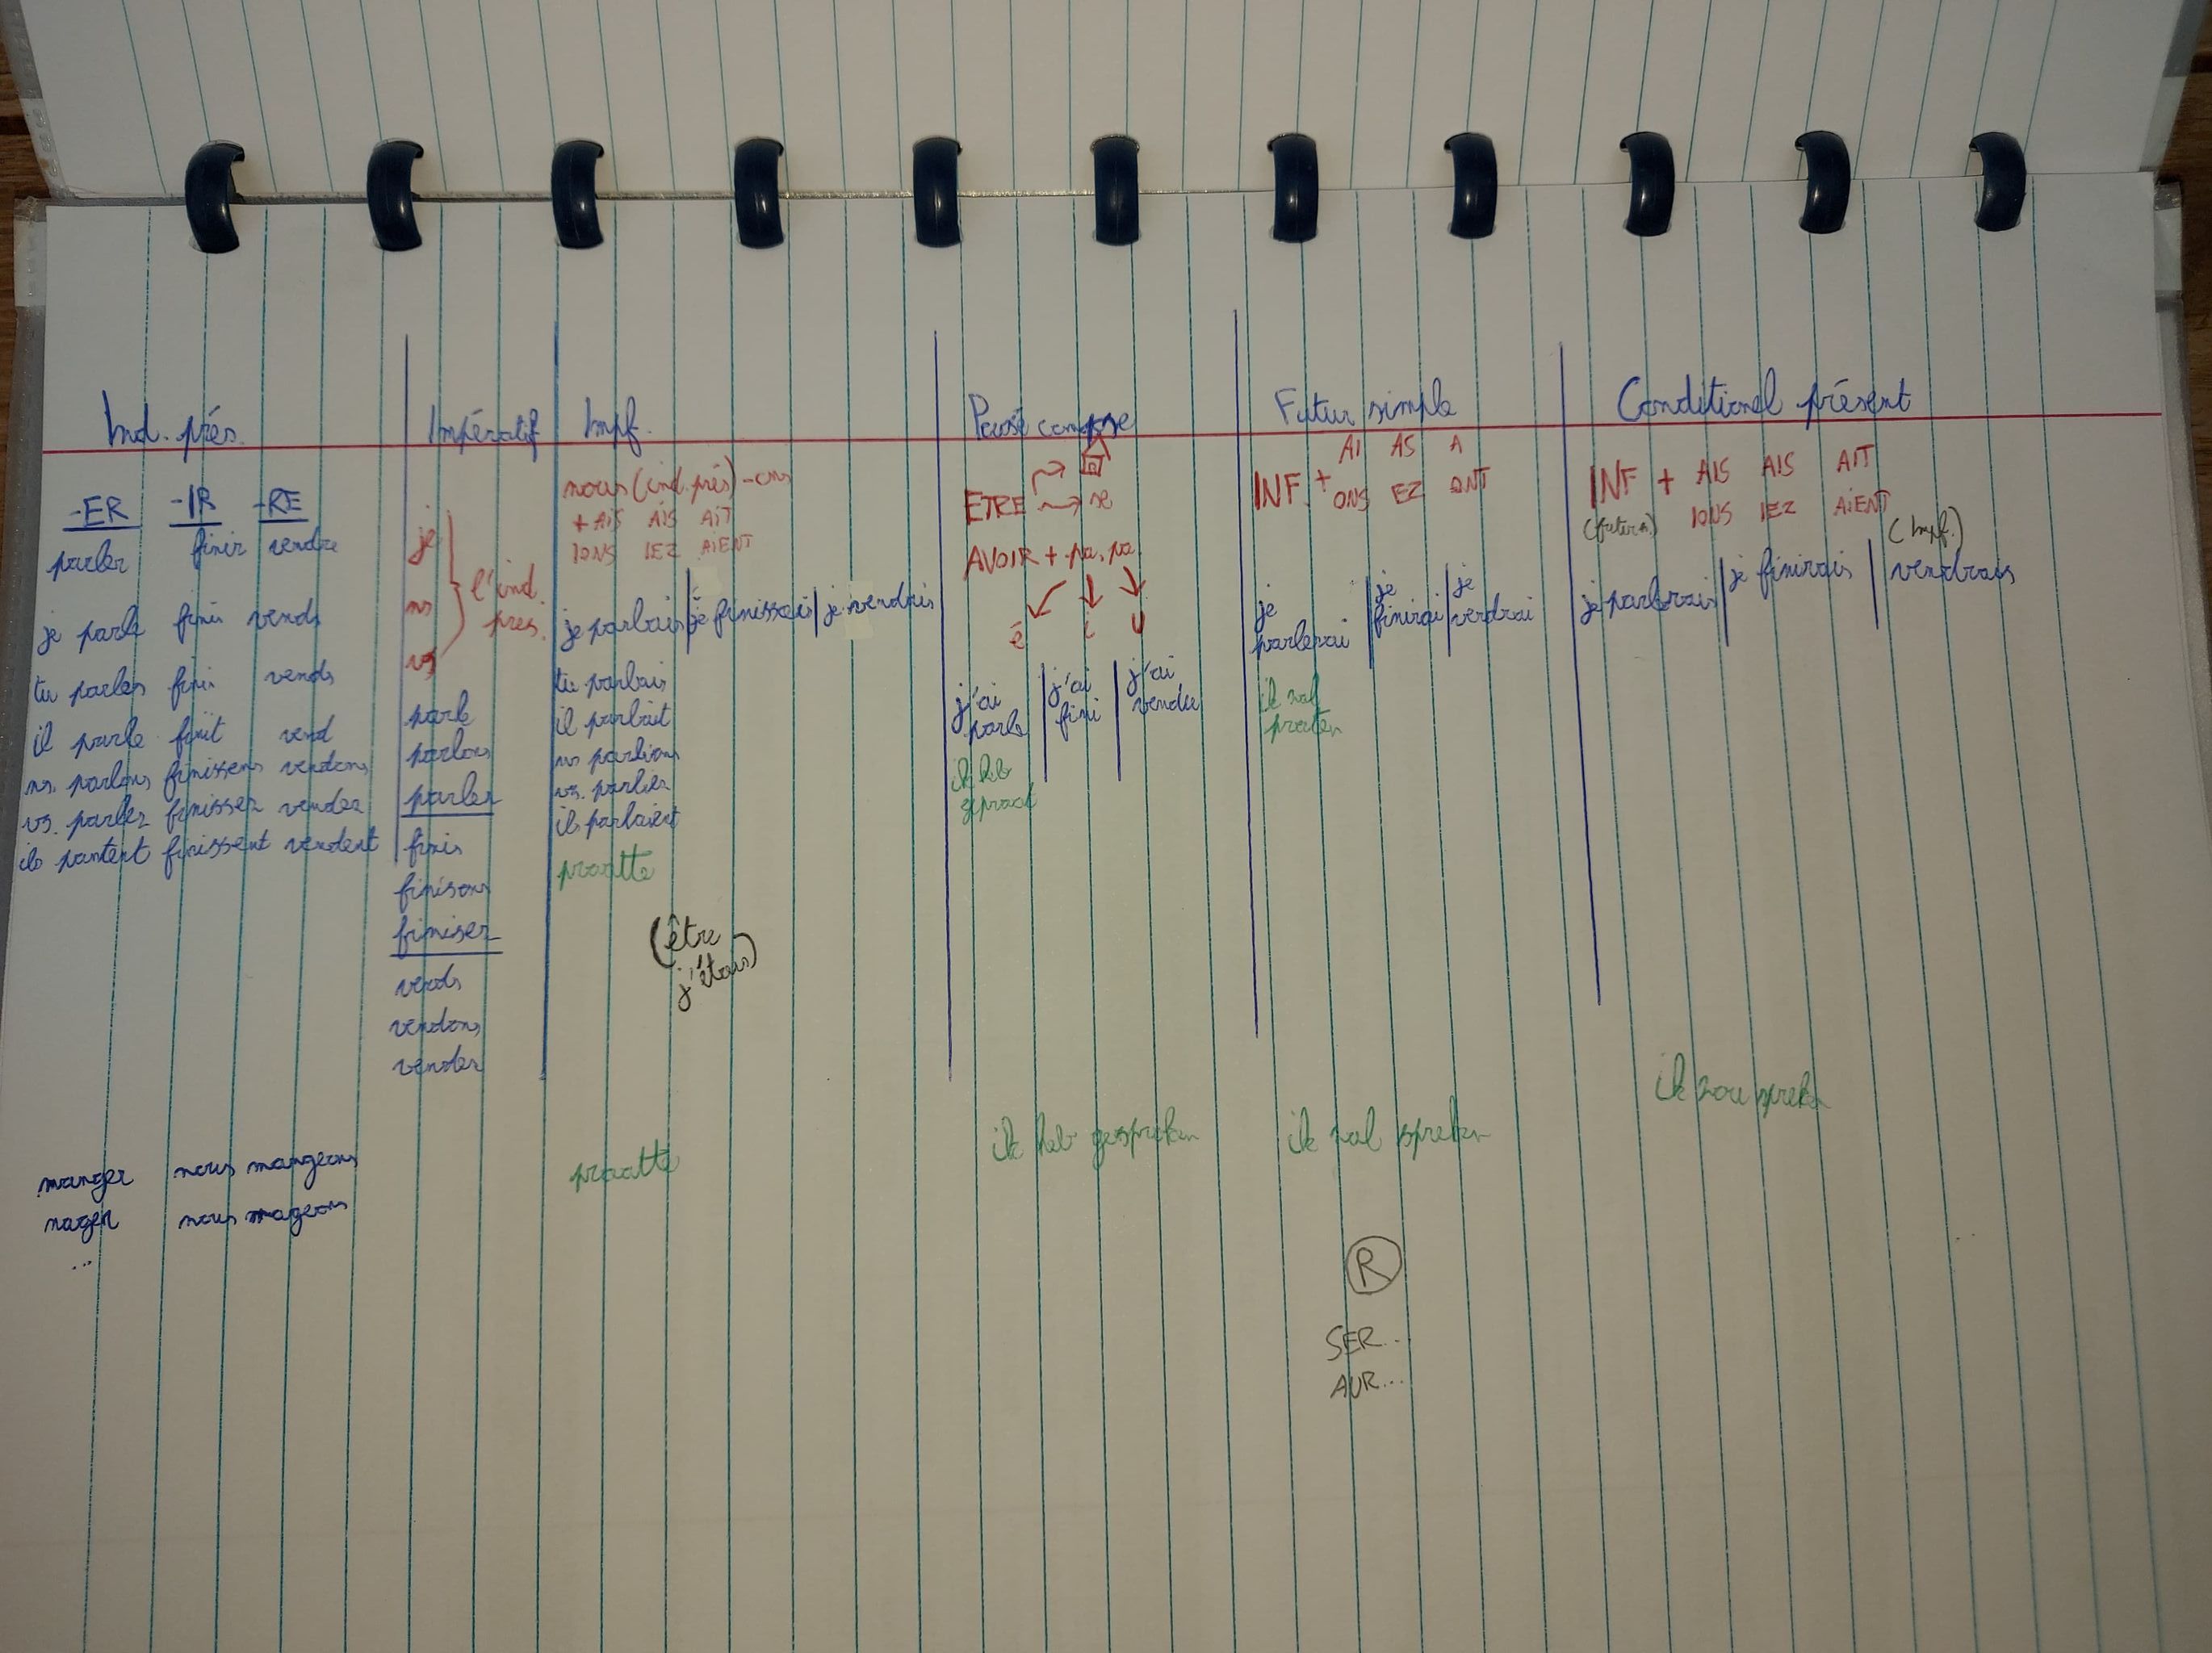 Ind. prés.
-ER -IR -RE
parler finir vendre
je parle finis vends
tu parles finis vends
il parle finit vend
ns. parlons finissons vendons
vs. parlez finissez vendez
ils parlent finissent vendent
manger nous mangeons
nager nous nageons
...
Impératif
je
ns
vs
l'ind.
prés.
parle
parlons
parlez
finis
finisons
finisez
vends
vendons
vendez
Impf.
nous (ind. prés) -ons
+ AIS AIS AIT
IONS IEZ AIENT
je parlais | je finissais | je vendais
tu parlais
il parlait
ns parlions
vs. parliez
ils parlaient
praatte
(être
j'étais)
praatte
Passé compose
ETRE → se
AVOIR + pa. pa
é i u
j'ai parlé | j'ai fini | j'ai vendu
ik heb
gepraat
ik heb gesproken
Futur simple
AI AS A
INF. + ONS EZ ONT
je parlerai | je finirai | je vendrai
ik zal
praten
ik zal spreken
R
SER...
AUR...
Conditionel présent
INF + AIS AIS AIT
(futur s.) IONS IEZ AIENT (Impf.)
je parlerais | je finirais | vendrais
ik zou spreken